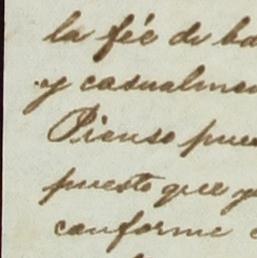 la fée de ba
y casualmen
Pienso pue
puesto que y
conforme